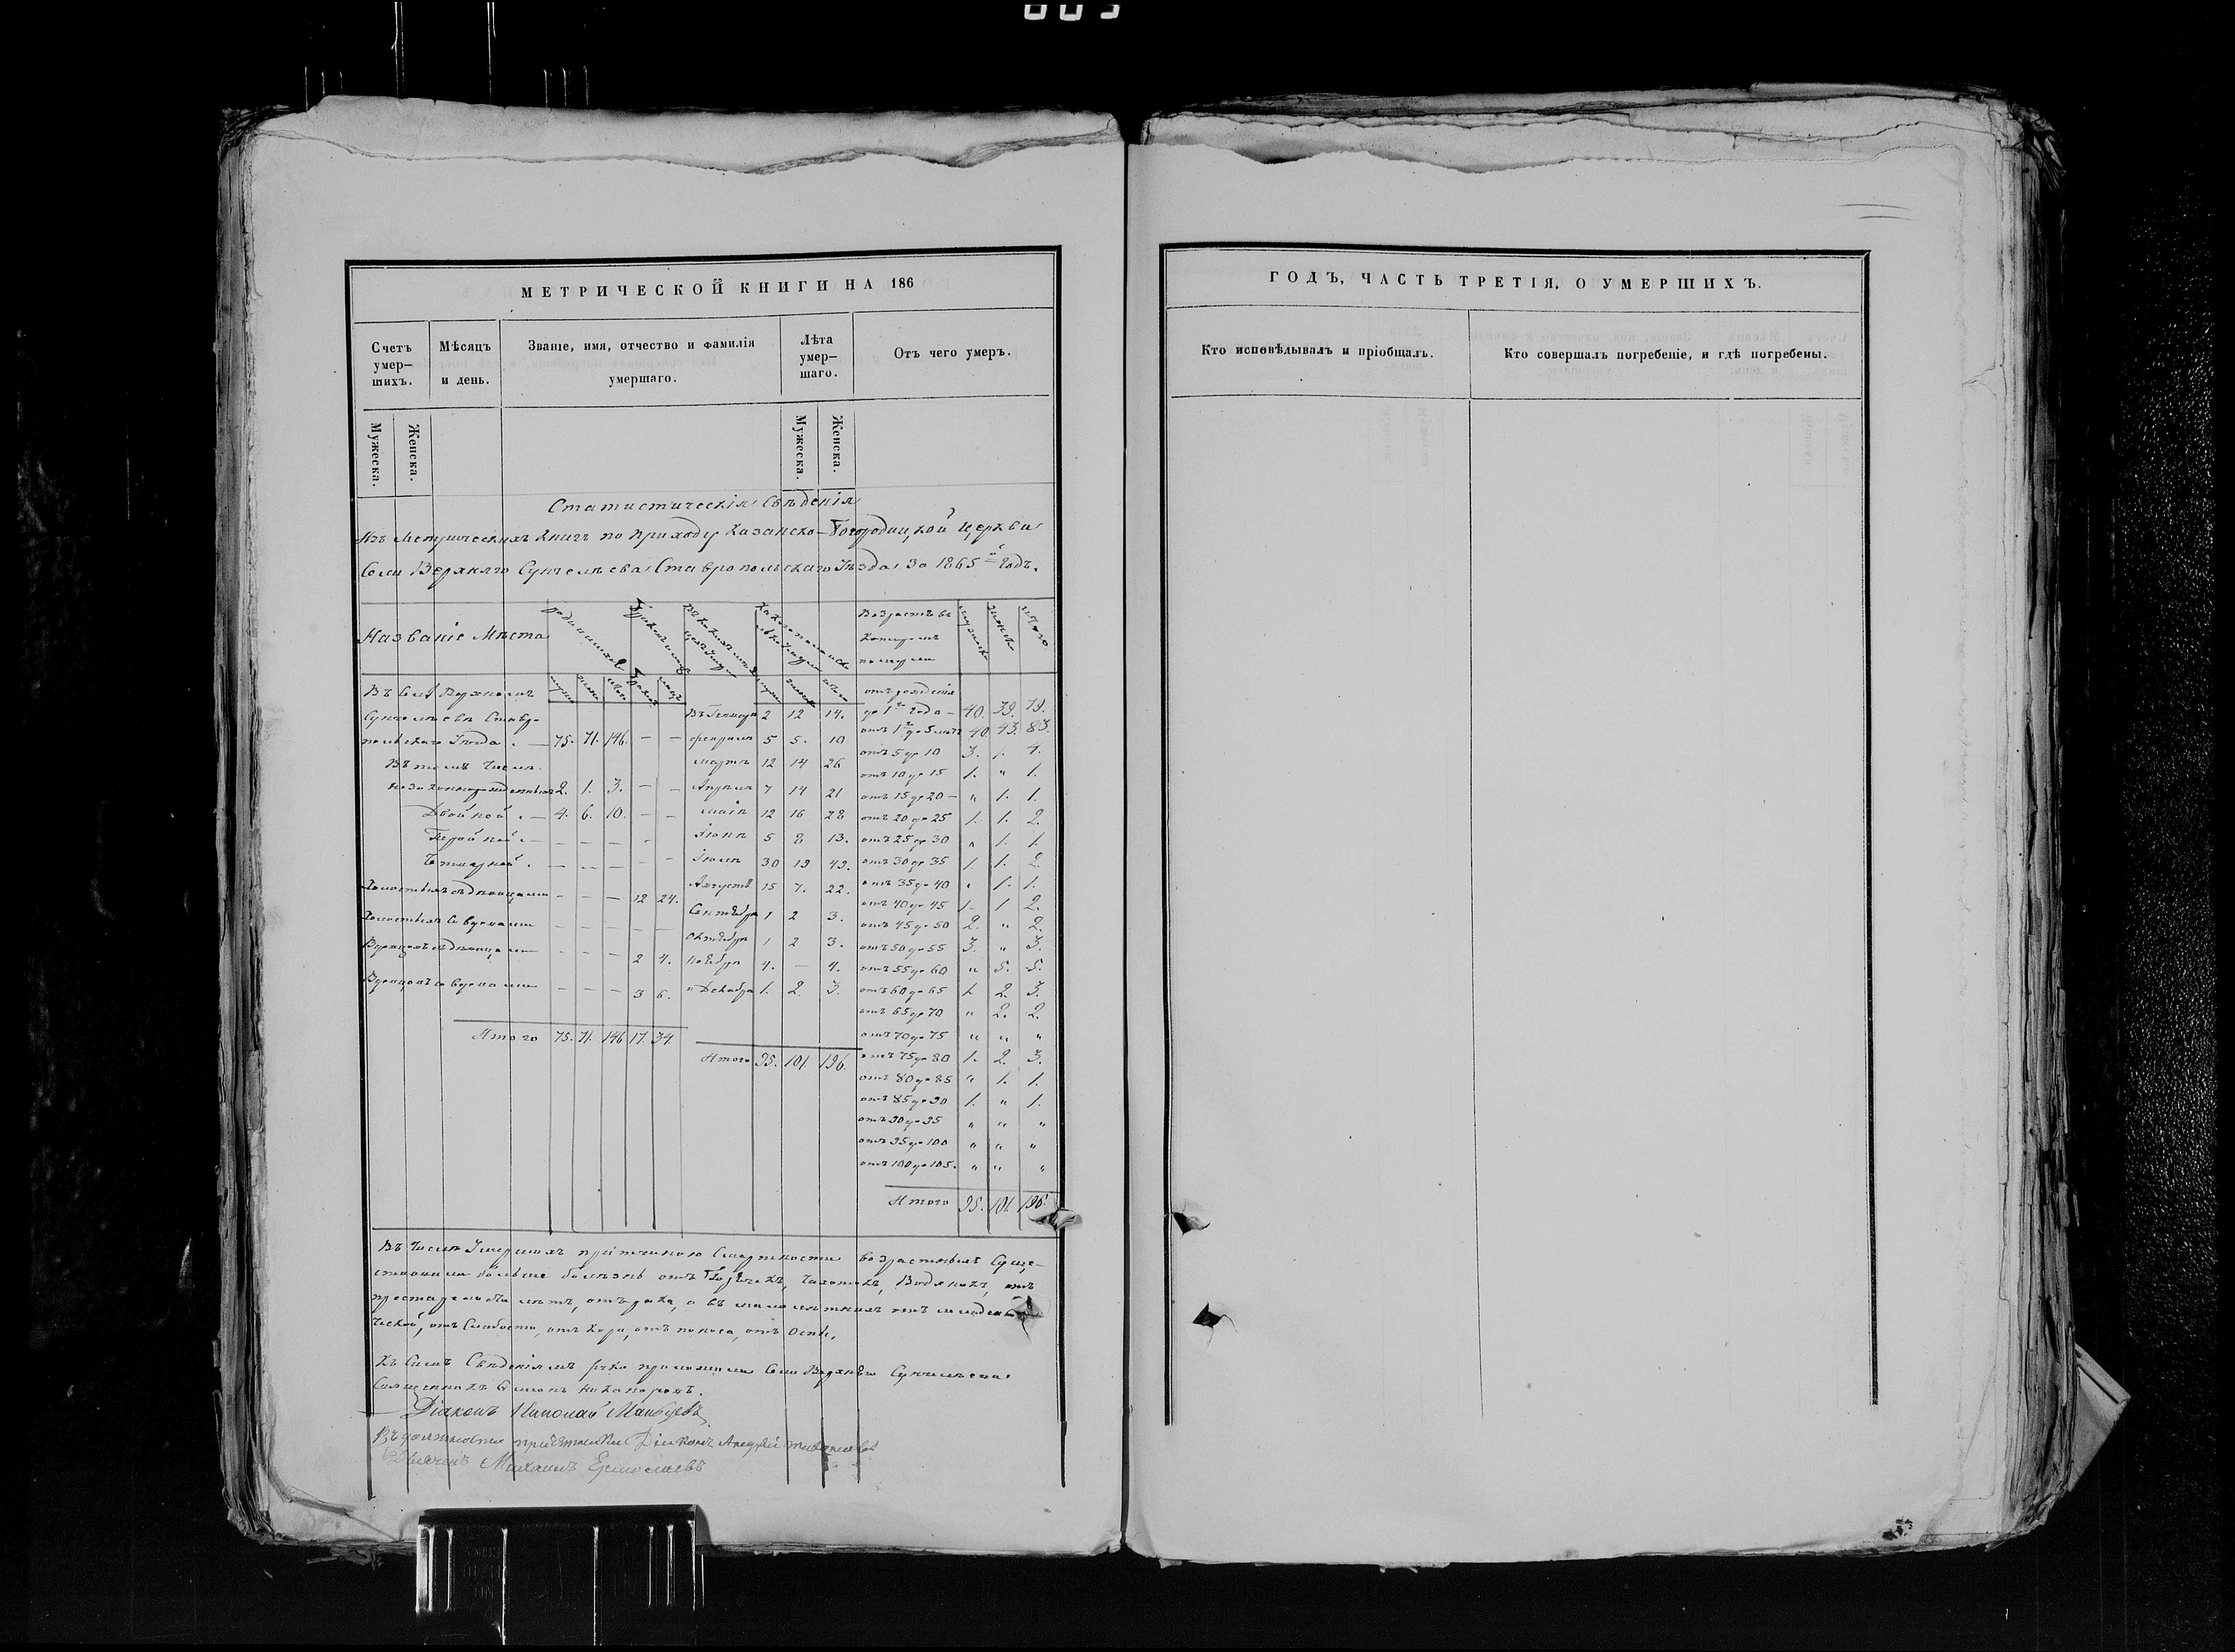 МЕТРИЧЕСКОЙ КНИГИ НА 186
Счетъ умер-шихъ.
Мѣсяцъ и день.
Званіе, имя, отчество и фамилія умершаго.
Лѣта умер-шаго.
Отъ чего умеръ.
Мужеска. Женска. Мужеска. Женска.
Статистическія Свѣденія
Изъ Метрическихъ Книгъ по приходу Казанско-Богородицкой Церкви
Села Верхняго Сунчелѣева Ставропольскаго Уѣзда За 1865й Годъ.
Названіе Мѣста
Возрастъ въ
которомъ
померли
Въ Селѣ Верхнемъ
Сунчелѣевѣ Ставро-
польскаго Уѣзда. — 75. 71. 146. — —
Въ томъ числѣ
незаконнорожденныхъ 2. 1. 3. — —
Двойной. — 4. 6. 10. — —
Тройной. — — — — —
Четверной. — — — — —
Холостыхъ съ дѣвицами — — — 12 24.
Холостыхъ со вдовами — — — — —
Вдовцовъ съ дѣвицами — — — 2 4.
Вдовцовъ со вдовами — — — 3 6.
Итого 75. 71. 146 17. 34.
Въ Генваре 2 12 14.
февралѣ 5 5. 10
мартѣ 12 14 26
Апрѣлѣ 7 14 21
маіѣ 12 16 28
Іюнѣ 5 8 13.
Іюлѣ 30 19 49.
Августѣ 15 7. 22.
Сентябрѣ 1 2 3.
Октябрѣ 1 2 3.
Ноябрѣ 4. — 4.
и Декабрѣ 1. 2. 3.
Итого 95. 101. 196.
отъ рожденія
до 1го года — 40. 39. 79.
отъ 1го до 5 лѣтъ 40 43. 83.
отъ 5 до 10 3. 1. 4.
отъ 10 до 15 1. " 1.
отъ 15 до 20 — " 1. 1.
отъ 20 до 25 1. 1. 2.
отъ 25 до 30 " 1. 1.
отъ 30 до 35 1. 1. 2.
отъ 35 до 40 " 1. 1.
отъ 40 до 45 1. 1 2.
отъ 45 до 50 2. " 2.
отъ 50 до 55 3. " 3.
отъ 55 до 60 " 5. 5.
отъ 60 до 65 1. 2. 3.
отъ 65 до 70 " 2. 2.
отъ 70 до 75 " " "
отъ 75 до 80 1. 2. 3.
отъ 80 до 85 " 1. 1.
отъ 85 до 90 1. " 1.
отъ 90 до 95 " " "
отъ 95 до 100 " " "
отъ 100 до 105. " " "
Итого 95. 101. 196.
Въ Числѣ Умершихъ причиною Смертности возрастныхъ Суще-
ствовали болѣе болѣзнь отъ Горячекъ, Чахотки, Водянки, отъ
престарелости лѣтъ, отъ рака, а въ малолѣтнихъ отъ младен
ческой, отъ Слабости, отъ Кори, отъ поноса, отъ Оспы,
Къ Симъ Свѣденіямъ руки приложили Села Верхняго Сунчелѣева
Священникъ Никаноровъ.
Діаконъ Николай
Въ должности причетника Діаконъ Андрей
Дьячекъ Михаилъ Ермолаевъ
ГОДЪ, ЧАСТЬ ТРЕТІЯ, О УМЕРШИХЪ.
Кто исповѣдывалъ и пріобщалъ.
Кто совершалъ погребеніе, и гдѣ погребены.